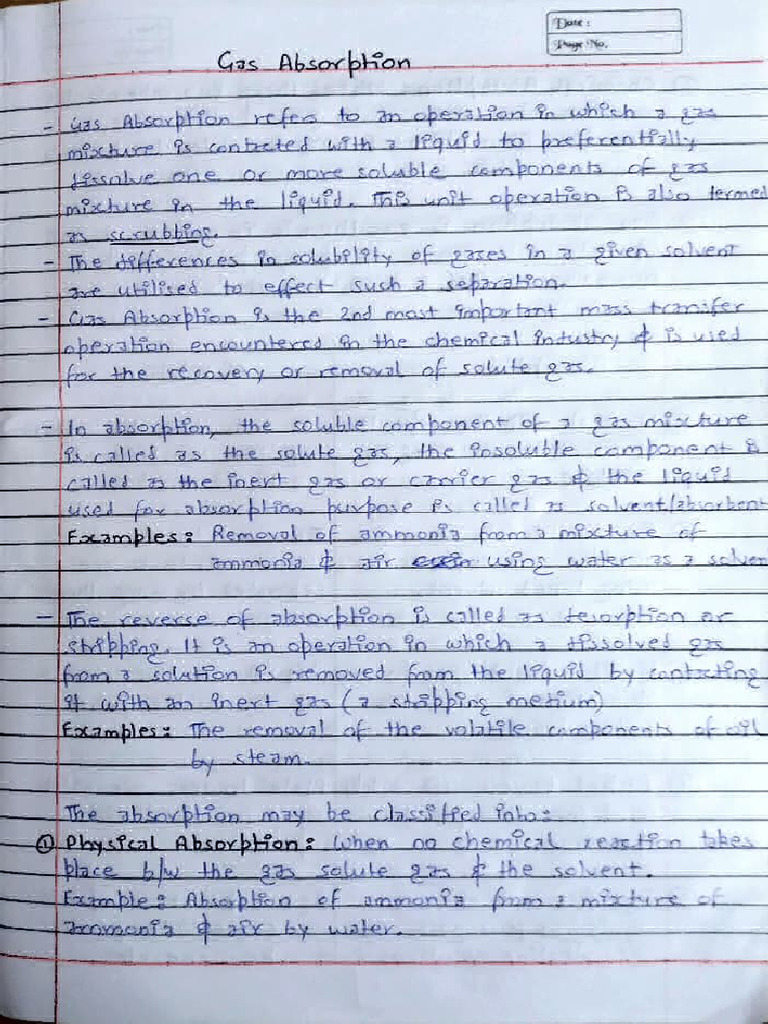 Date :
Page No.
Gas Absorption
- Gas Absorption refers to an operation in which a gas
mixture is contacted with a liquid to preferentially
dissolve one or more soluble components of gas
mixture in the liquid. This unit operation is also termed
as scrubbing.
- The differences in solubility of gases in a given solvent
are utilised to effect such a separation.
- Gas Absorption is the 2nd most important mass transfer
operation encountered in the chemical industry & is used
for the recovery or removal of solute gas.
- In absorption, the soluble component of a gas mixture
is called as the solute gas, the insoluble component is
called as the inert gas or carrier gas & the liquid
used for absorption purpose is called as solvent/absorbent
Examples: Removal of ammonia from a mixture of
ammonia & air using water as a solven
- The reverse of absorption is called as desorption or
stripping. It is an operation in which a dissolved gas
from a solution is removed from the liquid by contacting
it with an inert gas (a stripping medium)
Examples: The removal of the volatile components of oil
by steam.
The absorption may be classified into:
① Physical Absorption: When no chemical reaction takes
place b/w the gas solute gas & the solvent.
Example: Absorption of ammonia from a mixture of
ammonia & air by water.